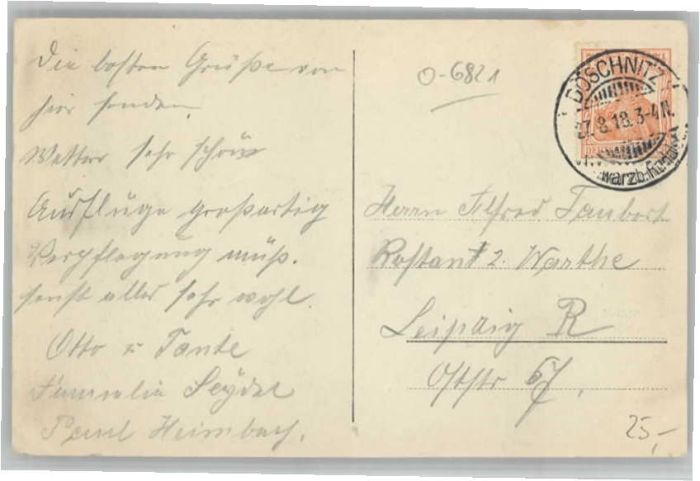 Die besten Grüße von
hier senden
Wetter sehr schön
Ausflüge großartig
Verpflegung müß.
sonst alles sehr wohl.
Otto u Tante
Familie Seydel
Paul Heimbach.
0-6821
DÖSCHNITZ
27.8.18.3-4N.
Herrn Alfred Taubert
Restaur. z. Warthe
Leipzig R
Oststr 57.
25,-